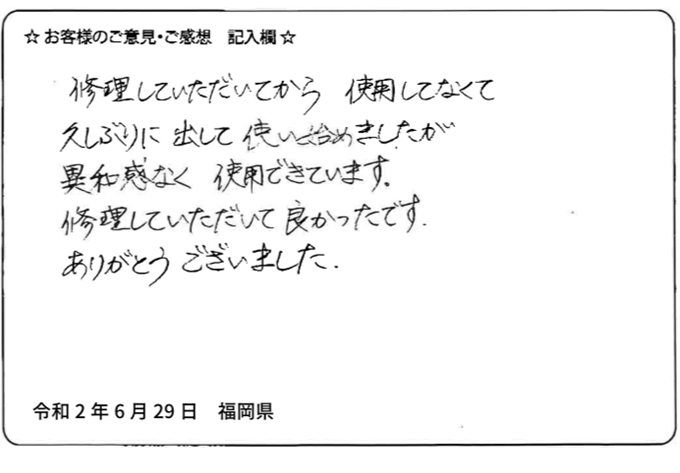 ☆お客様のご意見・ご感想 記入欄☆
修理していただいてから 使用してなくて
久しぶりに 出して 使い始めましたが
異和感なく 使用できています。
修理していただいて 良かったです.
ありがとう ございました.
令和2年6月29日 福岡県